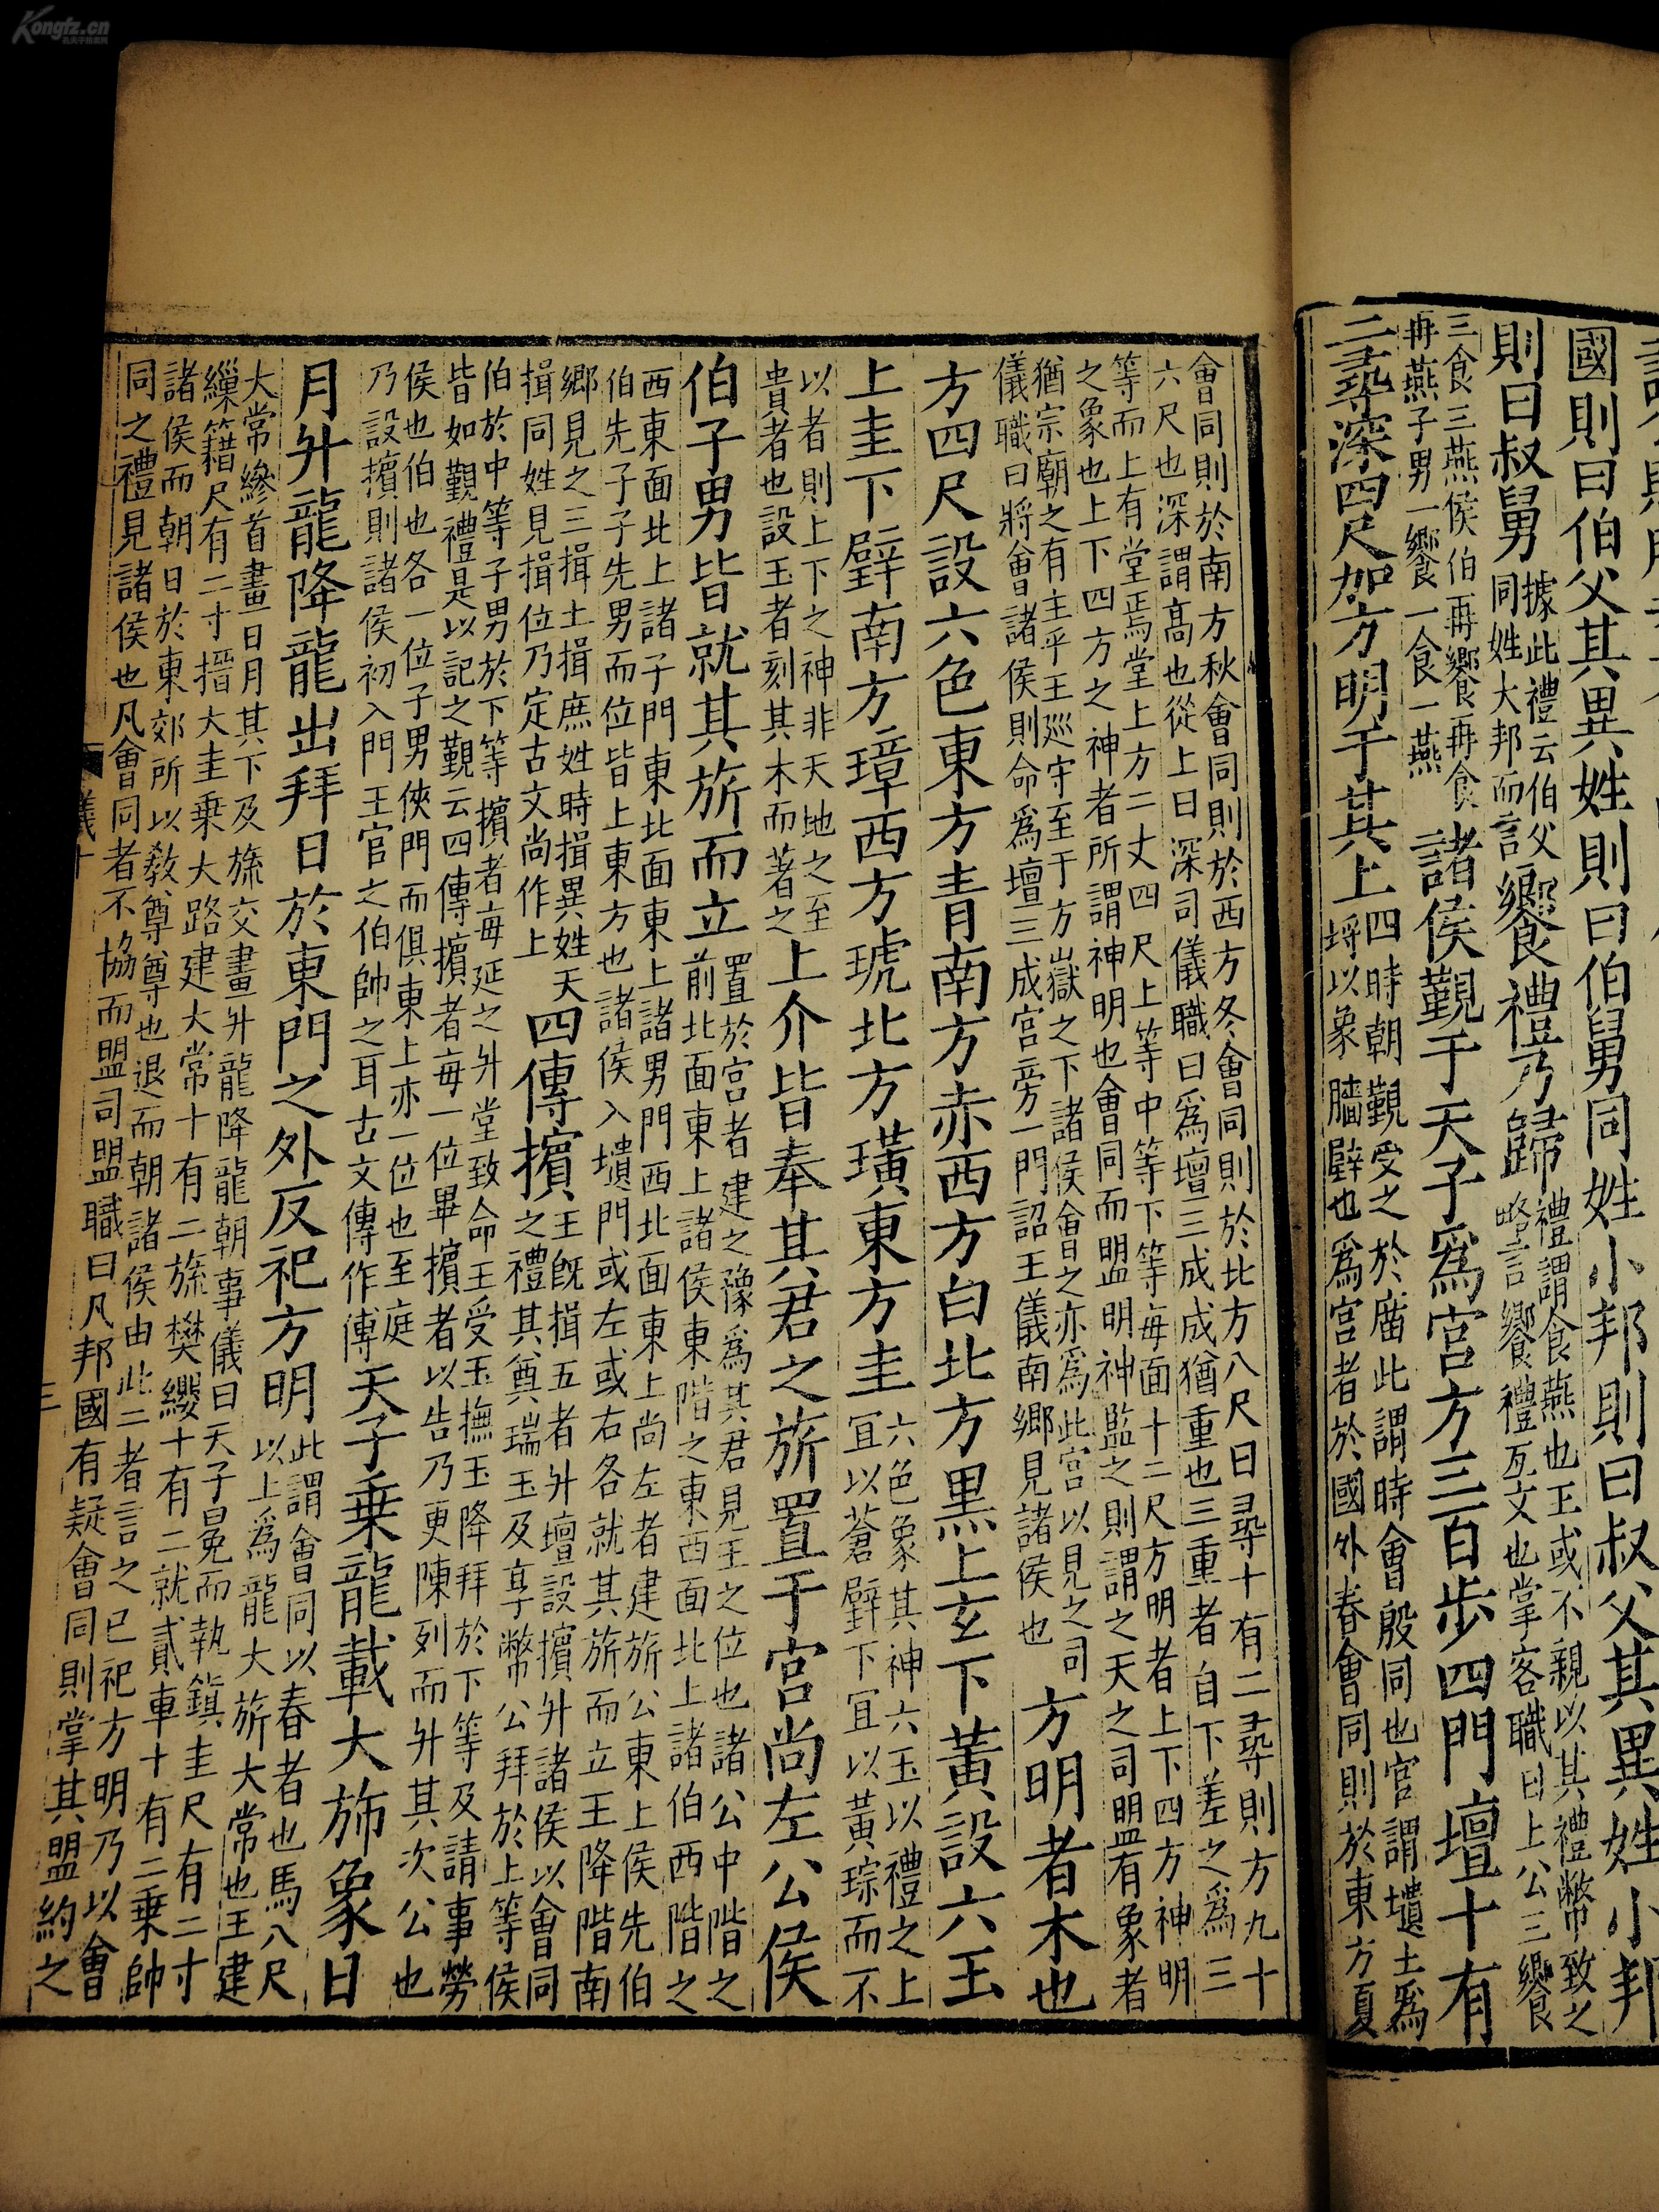 國則曰伯父其異姓則曰伯舅同姓小邦則曰叔父其異姓小邦
則曰叔舅據此禮云伯父同姓大邦而言饗禮乃歸禮謂食燕也王或不親以其禮幣致之略言饗禮互文也掌客職曰上公三饗
三食三燕侯伯再饗再食再燕子男一饗一食一燕諸侯覲于天子爲宮方三百步四門壇十有
二尋深四尺加方明于其上四時朝覲受之於廟此謂時會殷同也宮謂壝土爲埒以象牆壁也爲宮者於國外春會同則於東方夏
會同則於南方秋會同則於西方冬會同則於北方八尺曰尋十有二尋則方九十六尺也深謂高也從上曰深司儀職曰爲壇三成成猶重也三重者自下差之爲三
等而上有堂焉堂上方二丈四尺上等中等下等每面十二尺方明者上下四方神明之象也上下四方之神者所謂神明也會同而盟明神監之則謂之天之司盟有象者
猶宗廟之有主乎王巡守至于方嶽之下諸侯會之亦爲此宮以見之司儀職曰將會諸侯則命爲壇三成宮旁一門詔王儀南鄉見諸侯也方明者木也
方四尺設六色東方青南方赤西方白北方黑上玄下黃設六玉
上圭下璧南方璋西方琥北方璜東方圭六色象其神六玉以禮之上宜以蒼璧下宜以黃琮而不
以者則上下之神非天地之至貴者也設玉者刻其木而著之上介皆奉其君之旂置于宮尚左公侯
伯子男皆就其旂而立置於宮者建之豫爲其君見王之位也諸公中階之前北面東上諸侯東階之東西面北上諸伯西階之
西東面北上諸子門東北面東上諸男門西北面東上尚左者建旂公東上侯先伯伯先子子先男而位皆上東方也諸侯入壝門或左或右各就其旂而立王降階南
鄉見之三揖土揖庶姓時揖異姓天揖同姓見揖位乃定古文尚作上四傳擯王既揖五者升壇設擯升諸侯以會同之禮其奠瑞玉及享幣公拜於上等侯
伯於中等子男於下等擯者每延之升堂致命王受玉撫玉降拜於下等及請事勞皆如覲禮是以記之覲云四傳擯者每一位畢擯者以告乃更陳列而升其次公也
侯也伯也各一位子男俠門而俱東上亦一位也至庭乃設擯則諸侯初入門王官之伯帥之耳古文傳作傅天子乘龍載大旂象日
月升龍降龍出拜日於東門之外反祀方明此謂會同以春者也馬八尺以上爲龍大旂大常也王建
大常縿首畫日月其下及旒交畫升龍降龍朝事儀曰天子冕而執鎮圭尺有二寸繅籍尺有二寸搢大圭乗大路建大常十有二旒樊纓十有二就貳車十有二乗帥
諸侯而朝日於東郊所以敎尊尊也退而朝諸侯由此二者言之已祀方明乃以會同之禮見諸侯也凡會同者不協而盟司盟職曰凡邦國有疑會同則掌其盟約之
儀十
三
Kongfz.cn